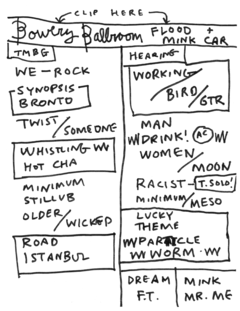 CLIP HERE
Bowery Ballroom FLOOD + MINK CAR
TMBG
WE-ROCK
SYNOPSIS
BRONTO
TWIST/SOMEONE
WHISTLING W
HOT CHA
MINIMUM
STILLUB
OLDER/WICKED
ROAD
ISTANBUL
HEARING
WORKING
BIRD/GTR
MAN
W/DRINK! AC W
WOMEN/MOON
RACIST-T. SOLO!
MINIMUM/MESO
LUCKY
THEME
W/PARTICLE
W WORM W
DREAM
F.T.
MINK
MR. ME